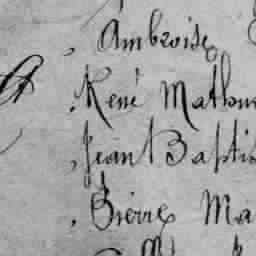 , Ambroise
, René Mathu
, Jean Baptis
, Pierre Ma